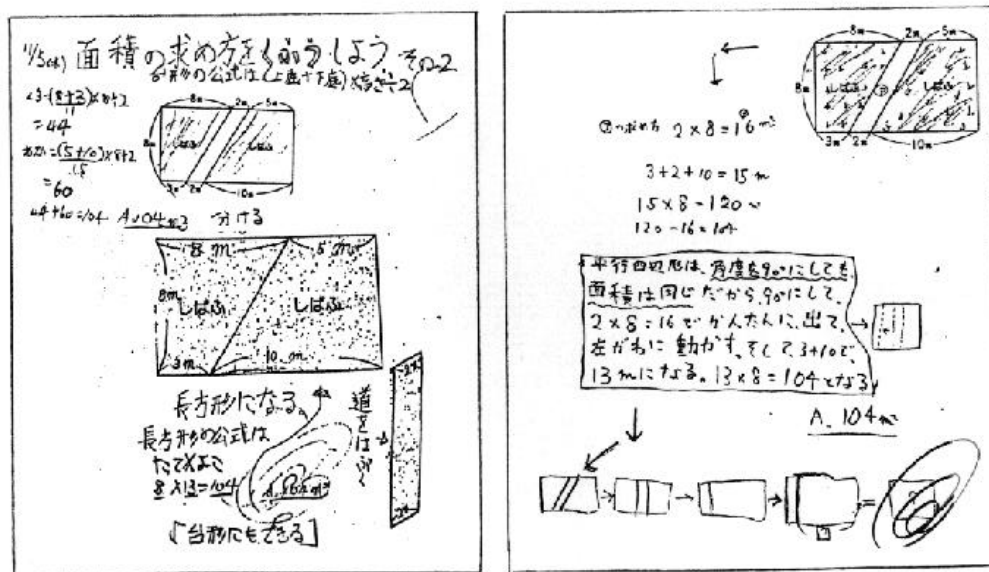 11/5(水) 面積の求め方をくふうしよう その2
台形の公式は(上底+下底)×高さ÷2
(8+3)×8÷2
11
=44
(5+10)×8÷2
15
=60
44+60=104 A.104
分ける
8m 2m 5m
8m
しばふ しばふ
3m 2m 10m
8m 5m
8m
しばふ しばふ
3m 10m
長方形になる。
長方形の公式は
たて×よこ
8×13=104
「台形にもできる」
道をはぶく
8m 2m 5m
8m
しばふ しばふ
3m 2m 10m
㋐の求め方 2×8=16m²
3+2+10=15m
15×8=120
120-16=104
平行四辺形は、角度を90°にしても
面積は同じだから、90°にして、
2×8=16でかんたんに、出て、
左がわに動かす。そして、3+10で、
13mになる。13×8=104となる
A. 104m²